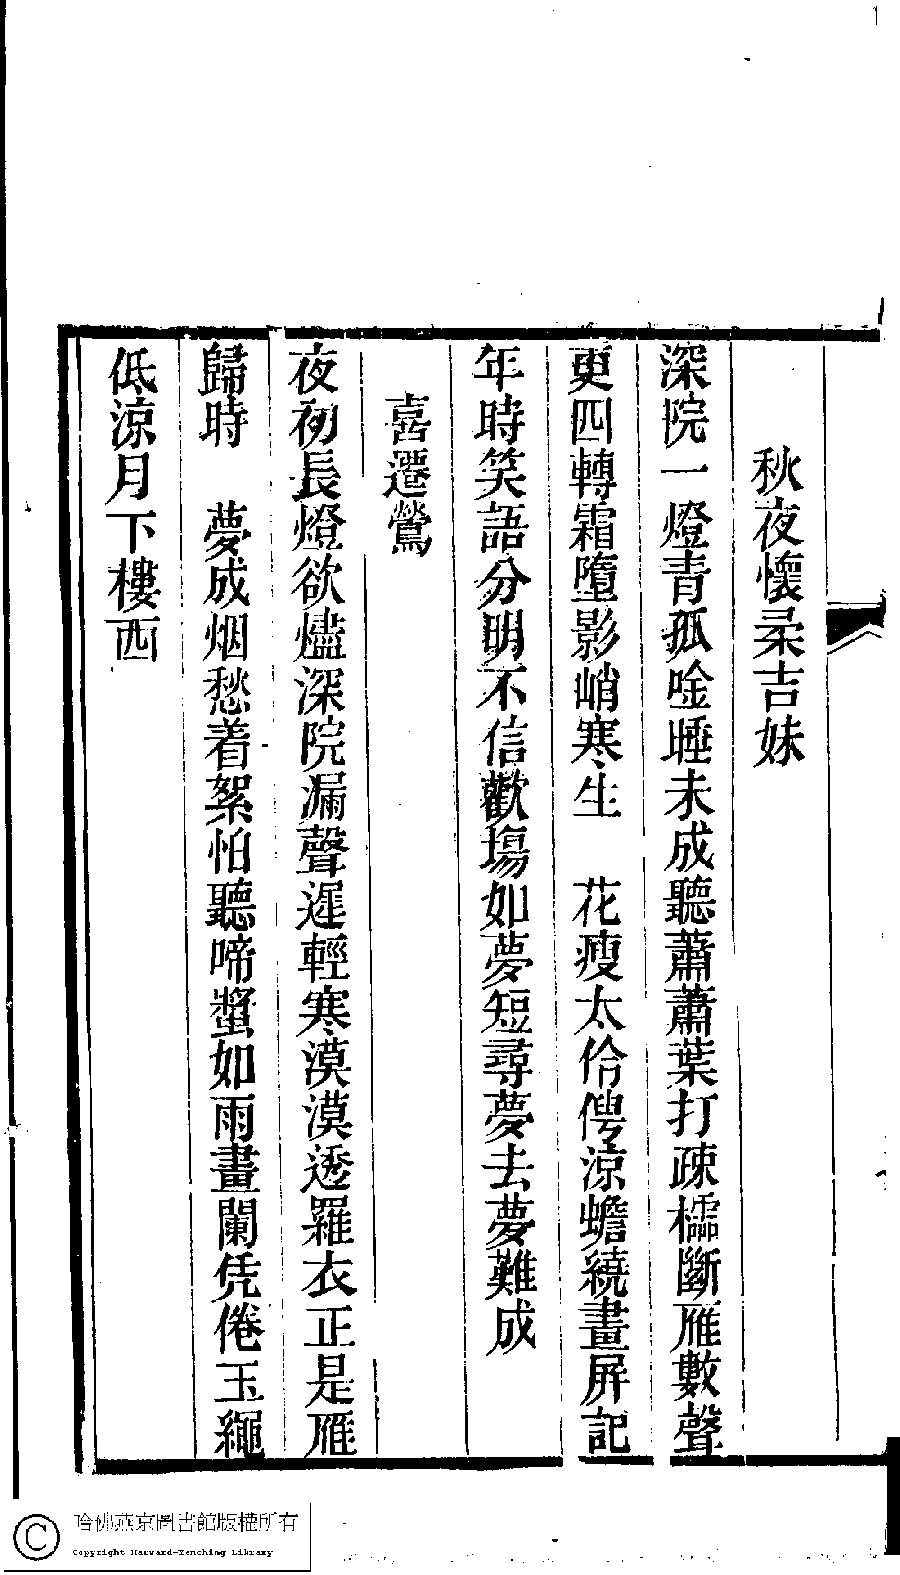 1
秋夜懷柔吉妹
深院一燈青孤唫睡未成聽蕭蕭葉打疎櫺斷雁數聲
更四轉霜墮影峭寒生　花瘦太伶俜涼蟾繞畫屏記
年時笑語分明不信歡塲如夢短尋夢去夢難成
喜遷鶯
夜初長燈欲燼深院漏聲遲輕寒漠漠透羅衣正是雁
歸時　夢成烟愁着絮怕聽啼螿如雨畫闌凭倦玉繩
低涼月下樓西
哈佛燕京圖書館版權所有
Copyright Harvard-Yenching Library